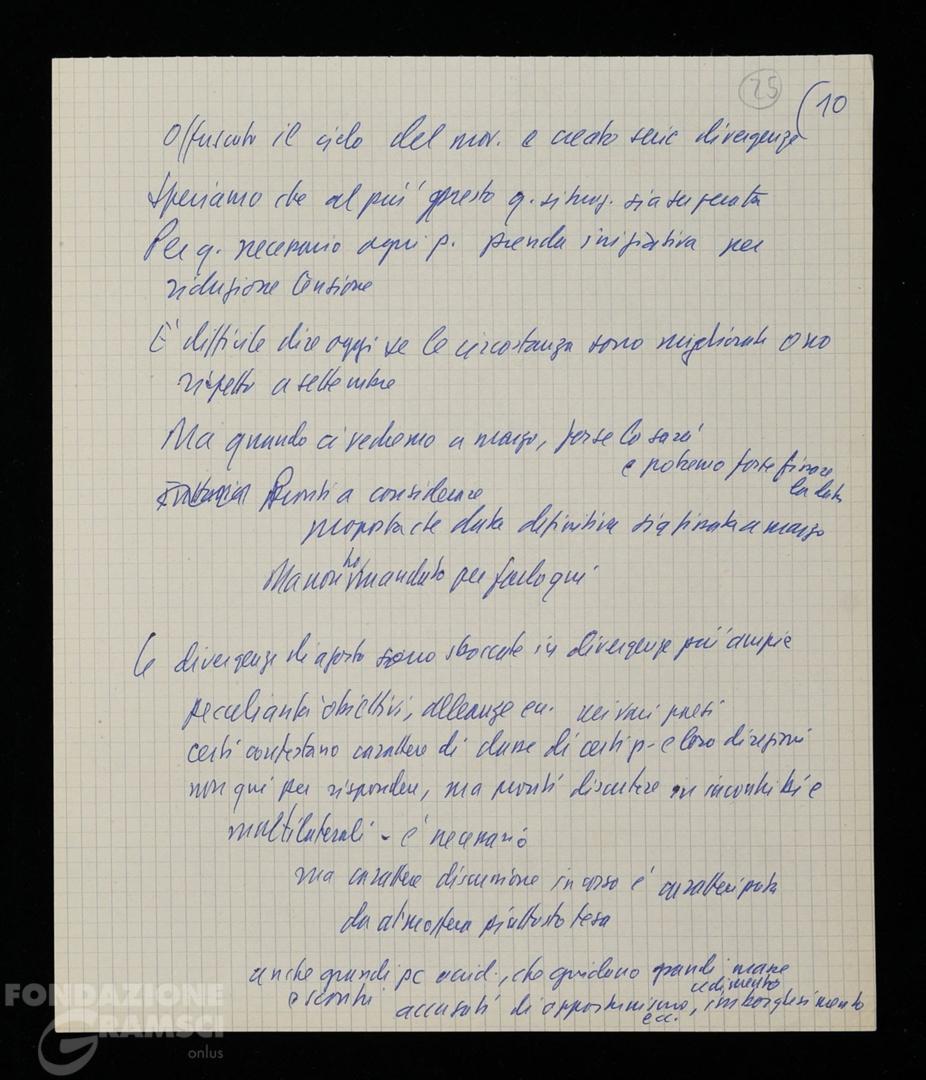 25
(10
Offuscato il cielo del mov. e creato serie divergenze
Speriamo che al più presto q. situaz. sia superata
Per q. necessario ogni p. prenda iniziativa per
riduzione tensione
È difficile dire oggi se le circostanze sono migliorate o no
rispetto a settembre
Ma quando ci vedremo a marzo, forse lo sarà
e potremo forse fissare
la data
Pronti a considerare
proposta che data definitiva sia fissata a marzo
Ma non ho mandato per farlo qui
Le divergenze di agosto sono sboccate in divergenze più ampie
peculiarità obiettivi, alleanze ecc. nei vari paesi
certi contestano carattere di classe di certi p. e loro direzioni
non qui per rispondere, ma pronti discutere in incontri bi e
multilaterali - è necessario
ma carattere discussione in corso è caratterizzata
da atmosfera piuttosto tesa
anche grandi pc occid., che guidano grandi masse
e scontri
accusati di opportunismo, cedimento imborghesimento
ecc.
FONDAZIONE
GRAMSCI
onlus